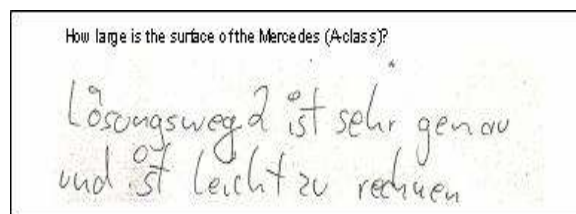 How large is the surface of the Mercedes (A-class)?
Lösungsweg 2 ist sehr genau
und ist leicht zu rechnen